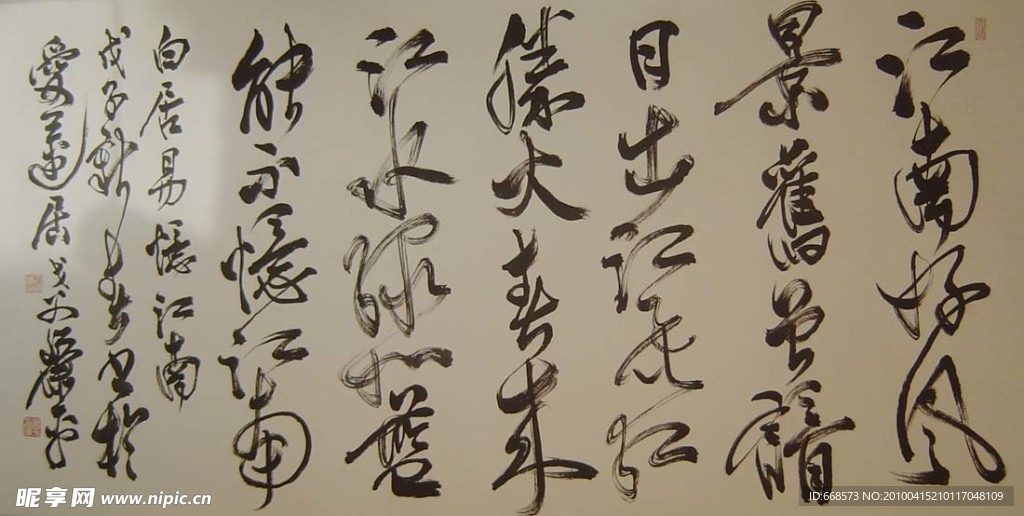 江南好風
景舊曾諳
日出江花紅
勝火春來
江水綠如藍
能不憶江南
白居易憶江南
戊子新春書於
愛蓮居
昵享网 www.nipic.cn
ID:668573 NO:20100415210117048109